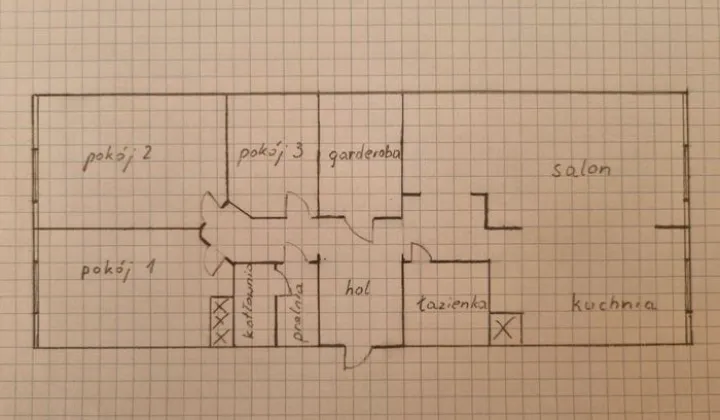 pokój 2
pokój 3
garderoba
salon
pokój 1
kotłownia
pralnia
hol
łazienka
kuchnia